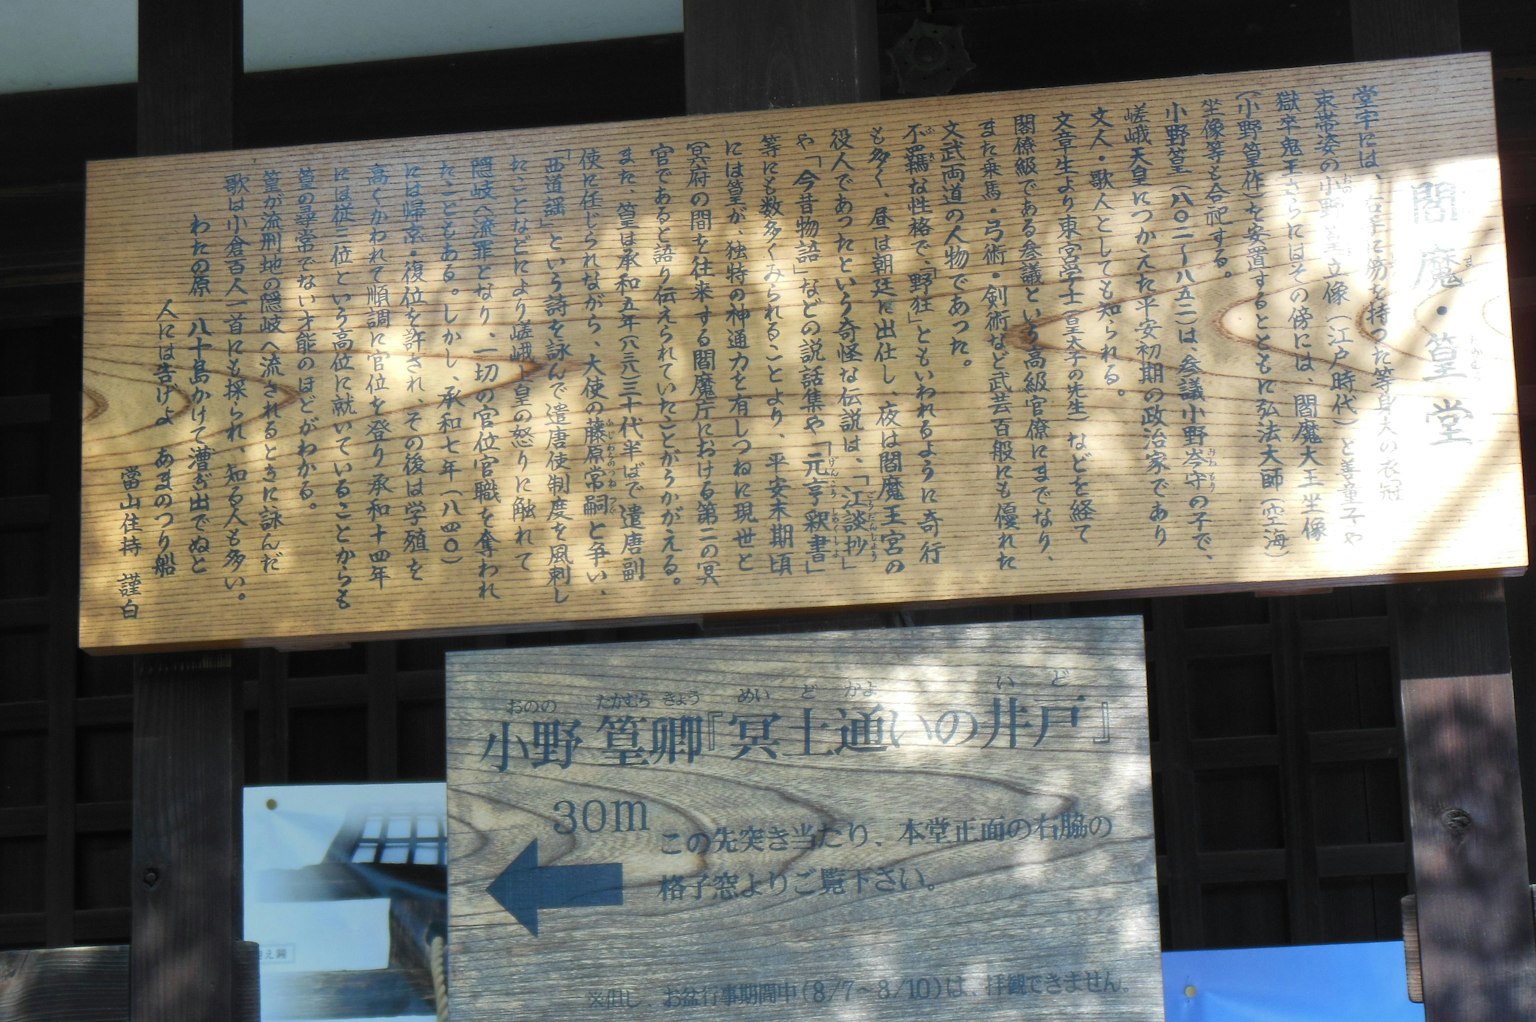 閻魔・篁堂
堂宇には、右手に笏を持った等身大の衣冠
束帯姿の小野篁立像(江戸時代)と善童子や
獄卒鬼王さらにはその傍には、閻魔大王坐像
(小野篁作)を安置するとともに弘法大師(空海)
坐像等も合祀する。
小野篁(八〇二〜八五二)は参議小野岑守の子で、
嵯峨天皇につかえた平安初期の政治家であり
文人・歌人としても知られる。
文章生より東宮学士(皇太子の先生)などを経て
閣僚級である参議という高級官僚にまでなり、
また乗馬・弓術・剣術など武芸百般にも優れた
文武両道の人物であった。
不羈な性格で、「野狂」ともいわれるように奇行
も多く、昼は朝廷に出仕し、夜は閻魔王宮の
役人であったという奇怪な伝説は、「江談抄」
や「今昔物語」などの説話集や「元亨釈書」
等にも数多くみられることより、平安末期頃
には篁が、独特の神通力を有しつねに現世と
冥府の間を往来する閻魔庁における第二の冥
官であると語り伝えられていたことがうかがえる。
また、篁は承和五年(八三八)三十代半ばで遣唐副
使に任じられながら、大使の藤原常嗣と争い、
「西道謡」という詩を詠んで遣唐使制度を風刺し
たことなどにより嵯峨上皇の怒りに触れて
隠岐へ流罪となり、一切の官位官職を奪われ
たこともある。しかし、承和七年(八四〇)
には帰京・復位を許され、その後は学殖を
高くかわれて順調に官位を登り承和十四年
には従三位という高位に就いていることからも
篁の尋常でない才能のほどがわかる。
篁が流刑地の隠岐へ流されるときに詠んだ
歌は小倉百人一首にも採られ、知る人も多い。
わたの原 八十島かけて漕ぎ出でぬと
人には告げよ あまのつり船
當山住持 謹白
小野篁卿『冥土通いの井戸』
30m
この先突き当たり、本堂正面の右脇の
格子窓よりご覧下さい。
※但し、お盆行事期間中(8/7〜8/10)は、拝観できません。